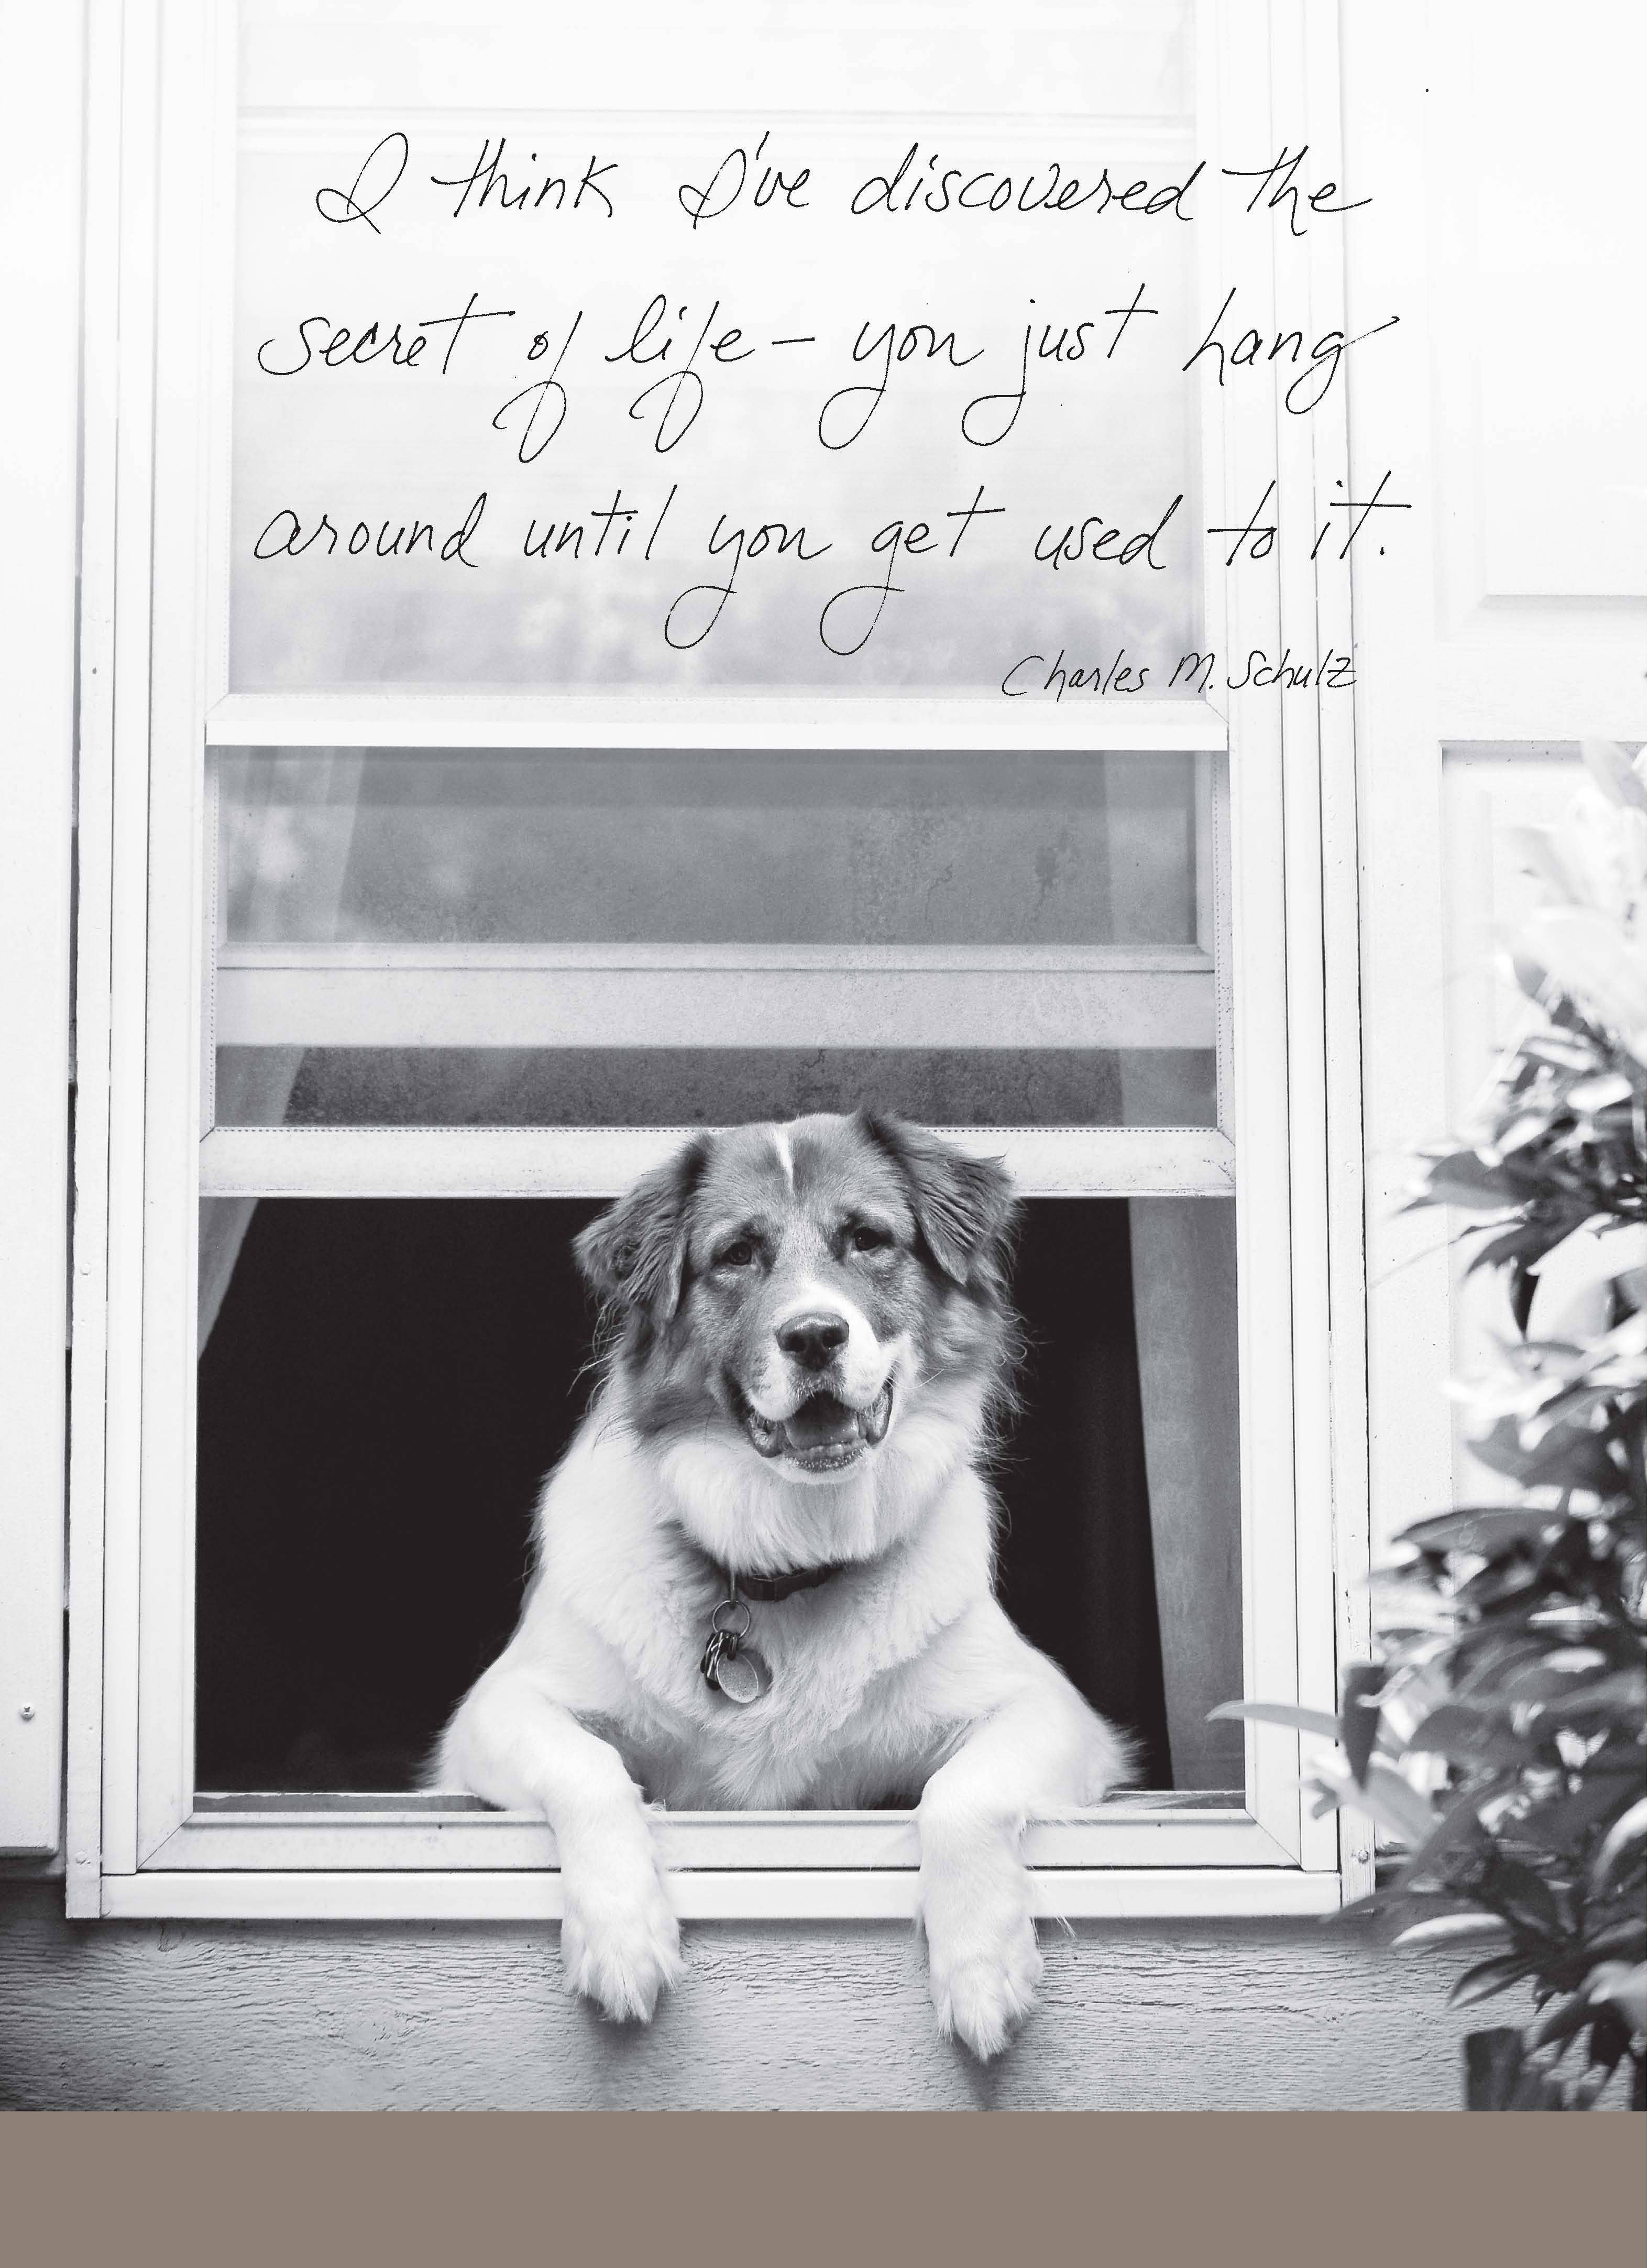 I think I've discovered the
secret of life – you just hang
around until you get used to it.
Charles M. Schulz